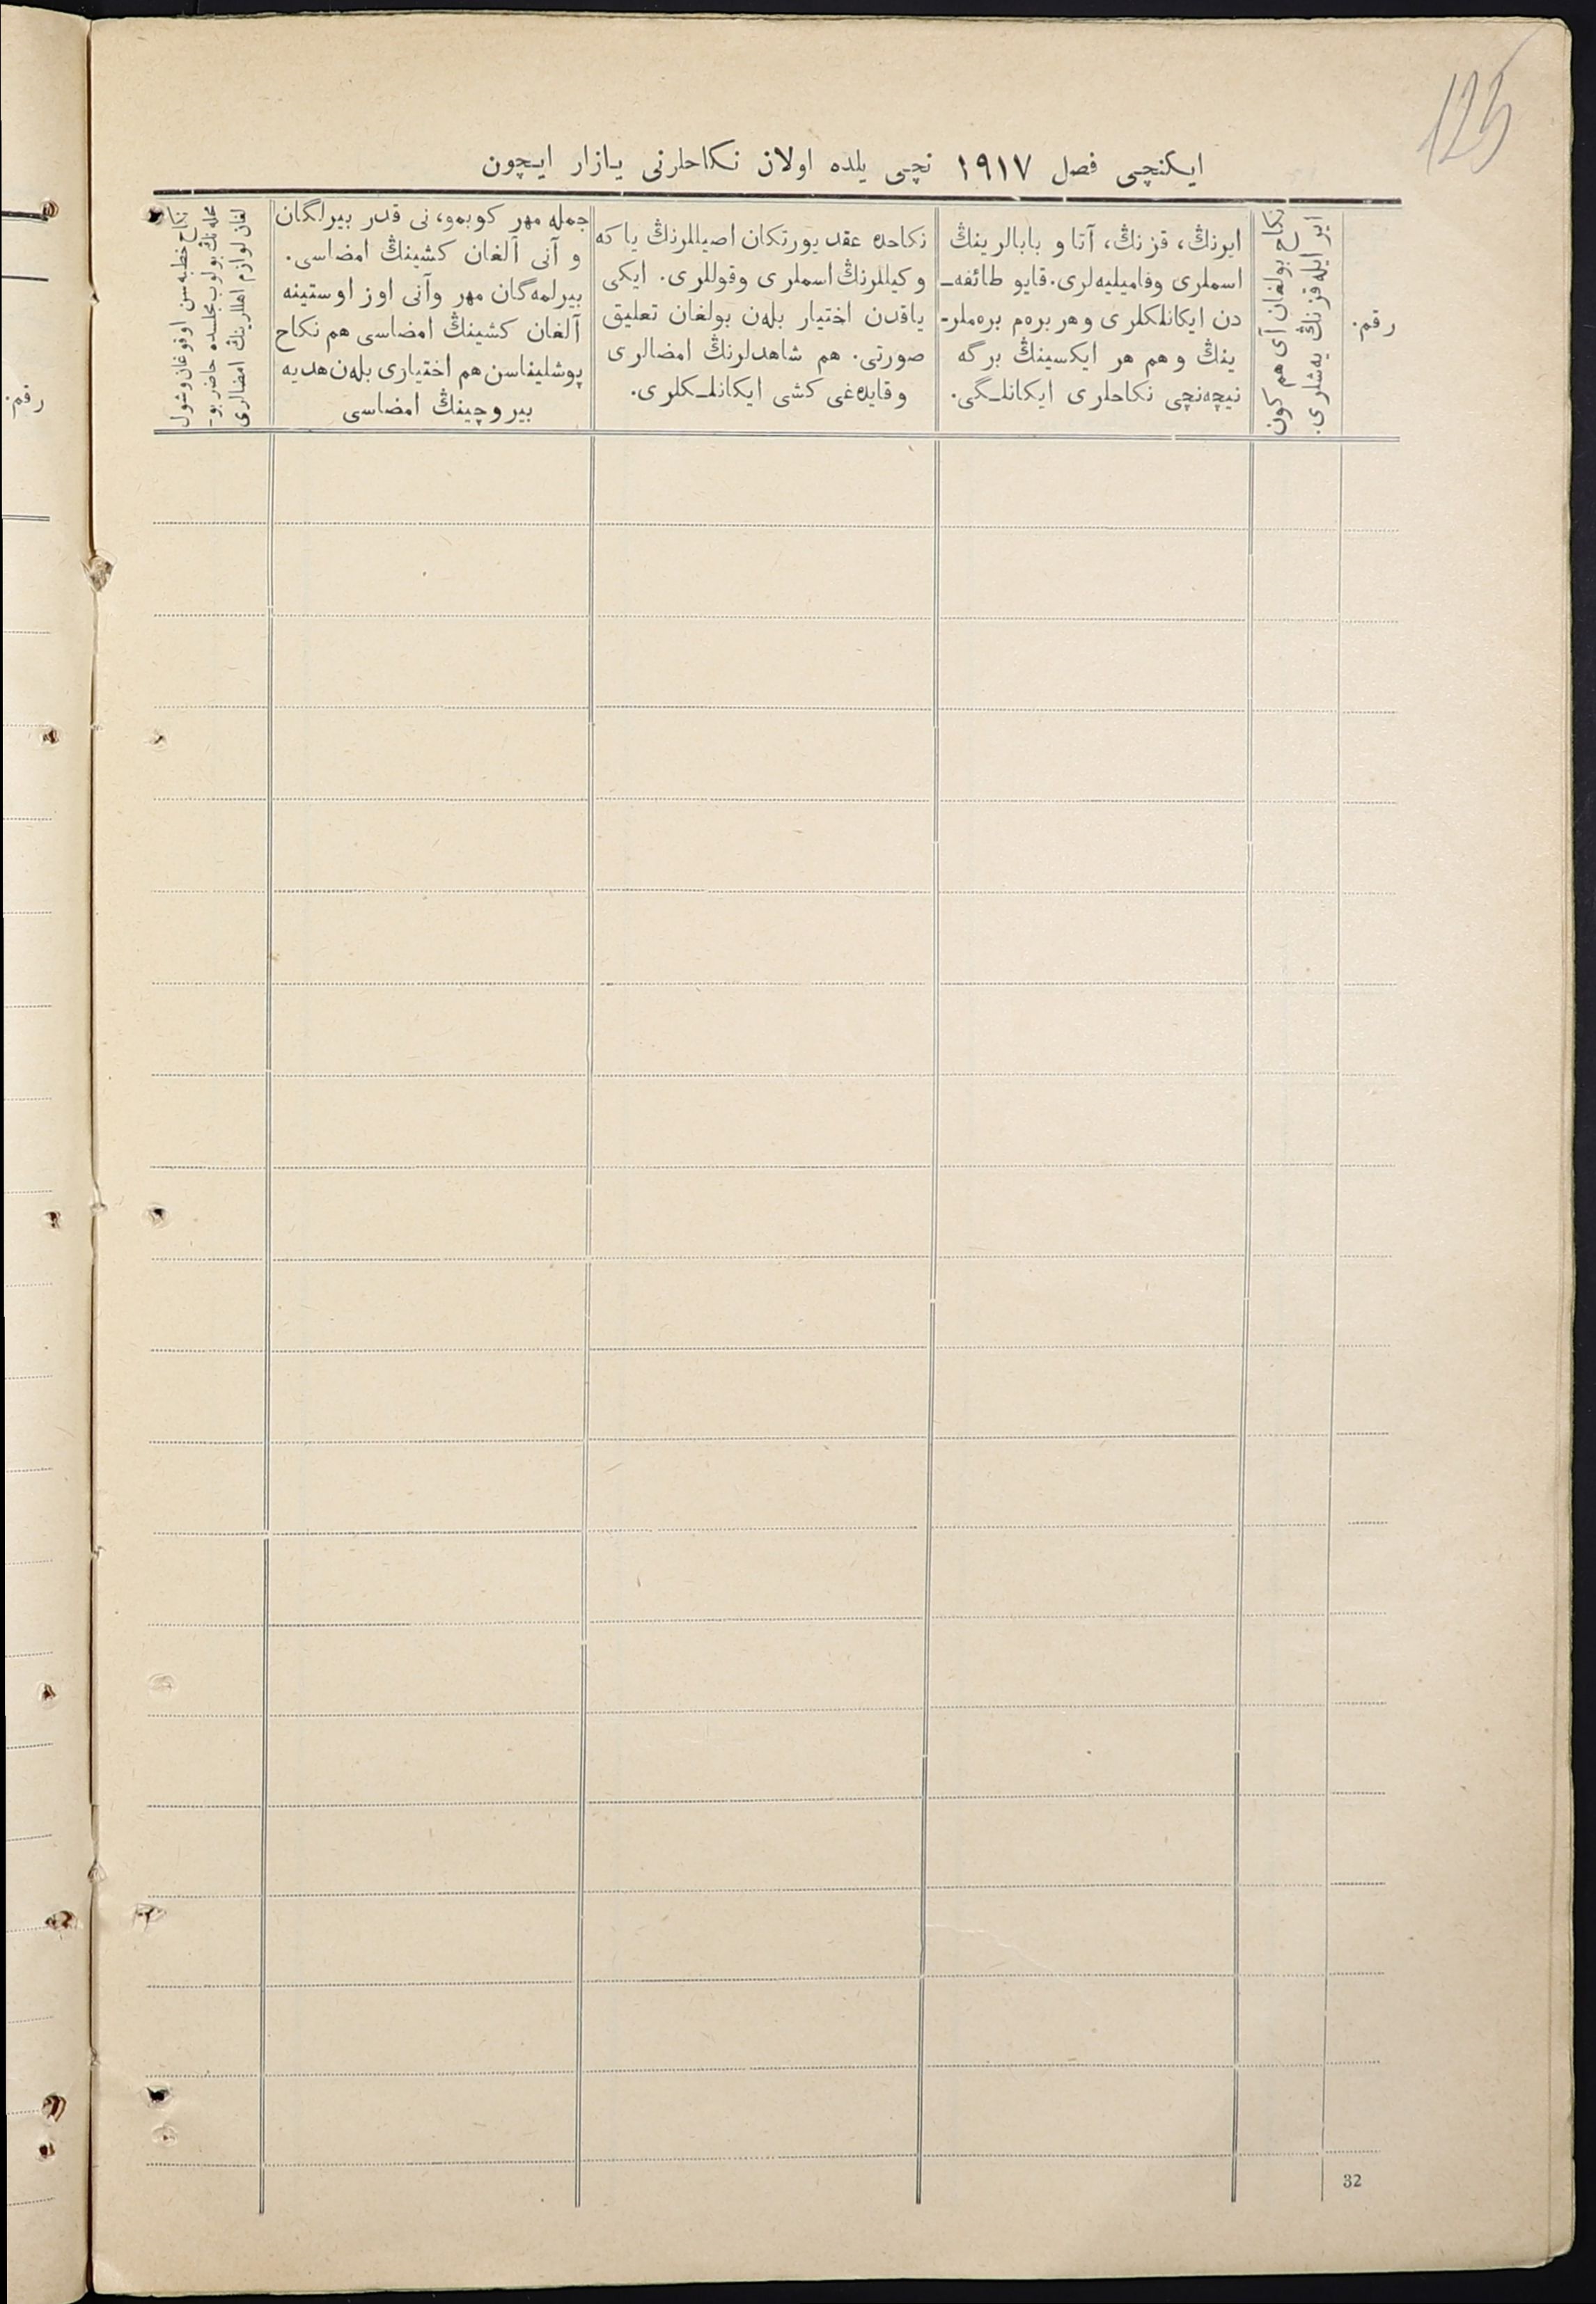 123
ایکنچی فصل ۱۹۱۷ نچی یلده اولان نکاحلرنی یازار ایچون
رقم.
نکاح بولغان آی هم کون
ایر ایله قزنڭ یه‌شلری.
ایرنڭ، قزنڭ، آتا و بابالرینڭ
اسملری وفامیلیه‌لری. قایو طائفه‌ـ
دن ایکانلکلری و هر بره‌م بره‌ملر-
ینڭ و هم هر ایکسینڭ برگه
نیچه‌نچی نکاحلری ایکانلـگی.
نکاحده عقد یورتکان اصیللرنڭ یا که
وکیللرنڭ اسملری وقوللری. ایکی
یاقدن اختیار بله‌ن بولغان تعلیق
صورتی. هم شاهدلرنڭ امضالری
وقایده‌غی کشی ایکانلـکلری.
جمله مهر کوبمو، نی قدر بیرلگان
و آنی آلغان کشینڭ امضاسی.
بیرلمه‌گان مهر وآنی اوز اوستینه
آلغان کشینڭ امضاسی هم نکاح
پوشلیناسن هم اختیاری بله‌ن هدیه
بیروچینڭ امضاسی
نکاح خطبه‌سن اوقوغان وشول
محله‌نڭ بولوب مجلسده حاضر بو-
لغان لوازم اهللرینڭ امضالری
رقم.
32